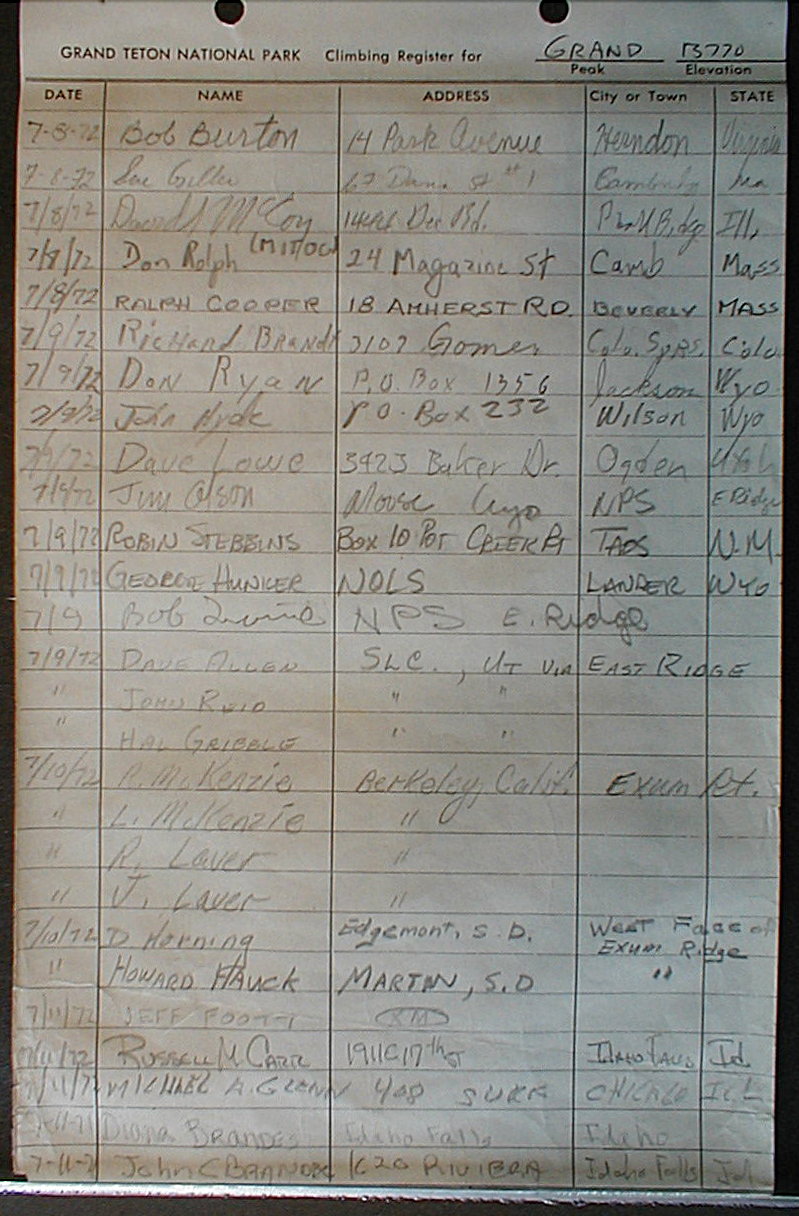 GRAND TETON NATIONAL PARK Climbing Register for GRAND 13770
Peak Elevation
DATE NAME ADDRESS City or Town STATE
7-8-72 Bob Burton 14 Park Avenue Herndon Virginia
7-8-72 Sue 67 Dana St #1 Ma
7/8/72 McCoy Rd. Ill,
7/8/72 Don Rolph (MITOC) 24 Magazine St Camb Mass
7/8/72 RALPH COOPER 18 AMHERST RD. BEVERLY MASS
7/9/72 Richard Brandt 3107 Gomer Colo. Spgs. Colo
7/9/72 Don Ryan P.O. Box 1356 Jackson Wyo
7/9/72 John P.O. Box 232 Wilson Wyo
7/9/72 Dave Lowe 3923 Baker Dr. Ogden Utah
7/9/72 Jim Olson Moose Wyo NPS E Ridge
7/9/72 ROBIN STEBBINS Box 10 POT CREEK Rt TAOS N.M.
7/9/72 GEORGE HUNKER NOLS LANDER WYO
7/9 Bob Irvine NPS E. Ridge
7/9/72 DAVE ALLEN SLC., UT VIA EAST RIDGE
" JOHN REID " "
" HAL GRIBBLE " "
7/10/72 R. McKenzie Berkeley, Calif. Exum Rt.
" L. McKenzie "
" R. Laver "
" J. Laver "
7/10/72 D Horning Edgemont, S.D. West Face of
Exum Ridge
" HOWARD HAUCK MARTIN, S.D "
7/11/72 JEFF FOOTT
7/11/72 RUSSELL M. CARR 1911 E 17th St IDAHO FALLS Id.
7/11/72 MICHAEL A. GLENN 408 CHICAGO ILL
7-11-71 Diana BRANDES Idaho Falls Idaho
7-11-7 John C 1620 RIVIERA Idaho Falls Id